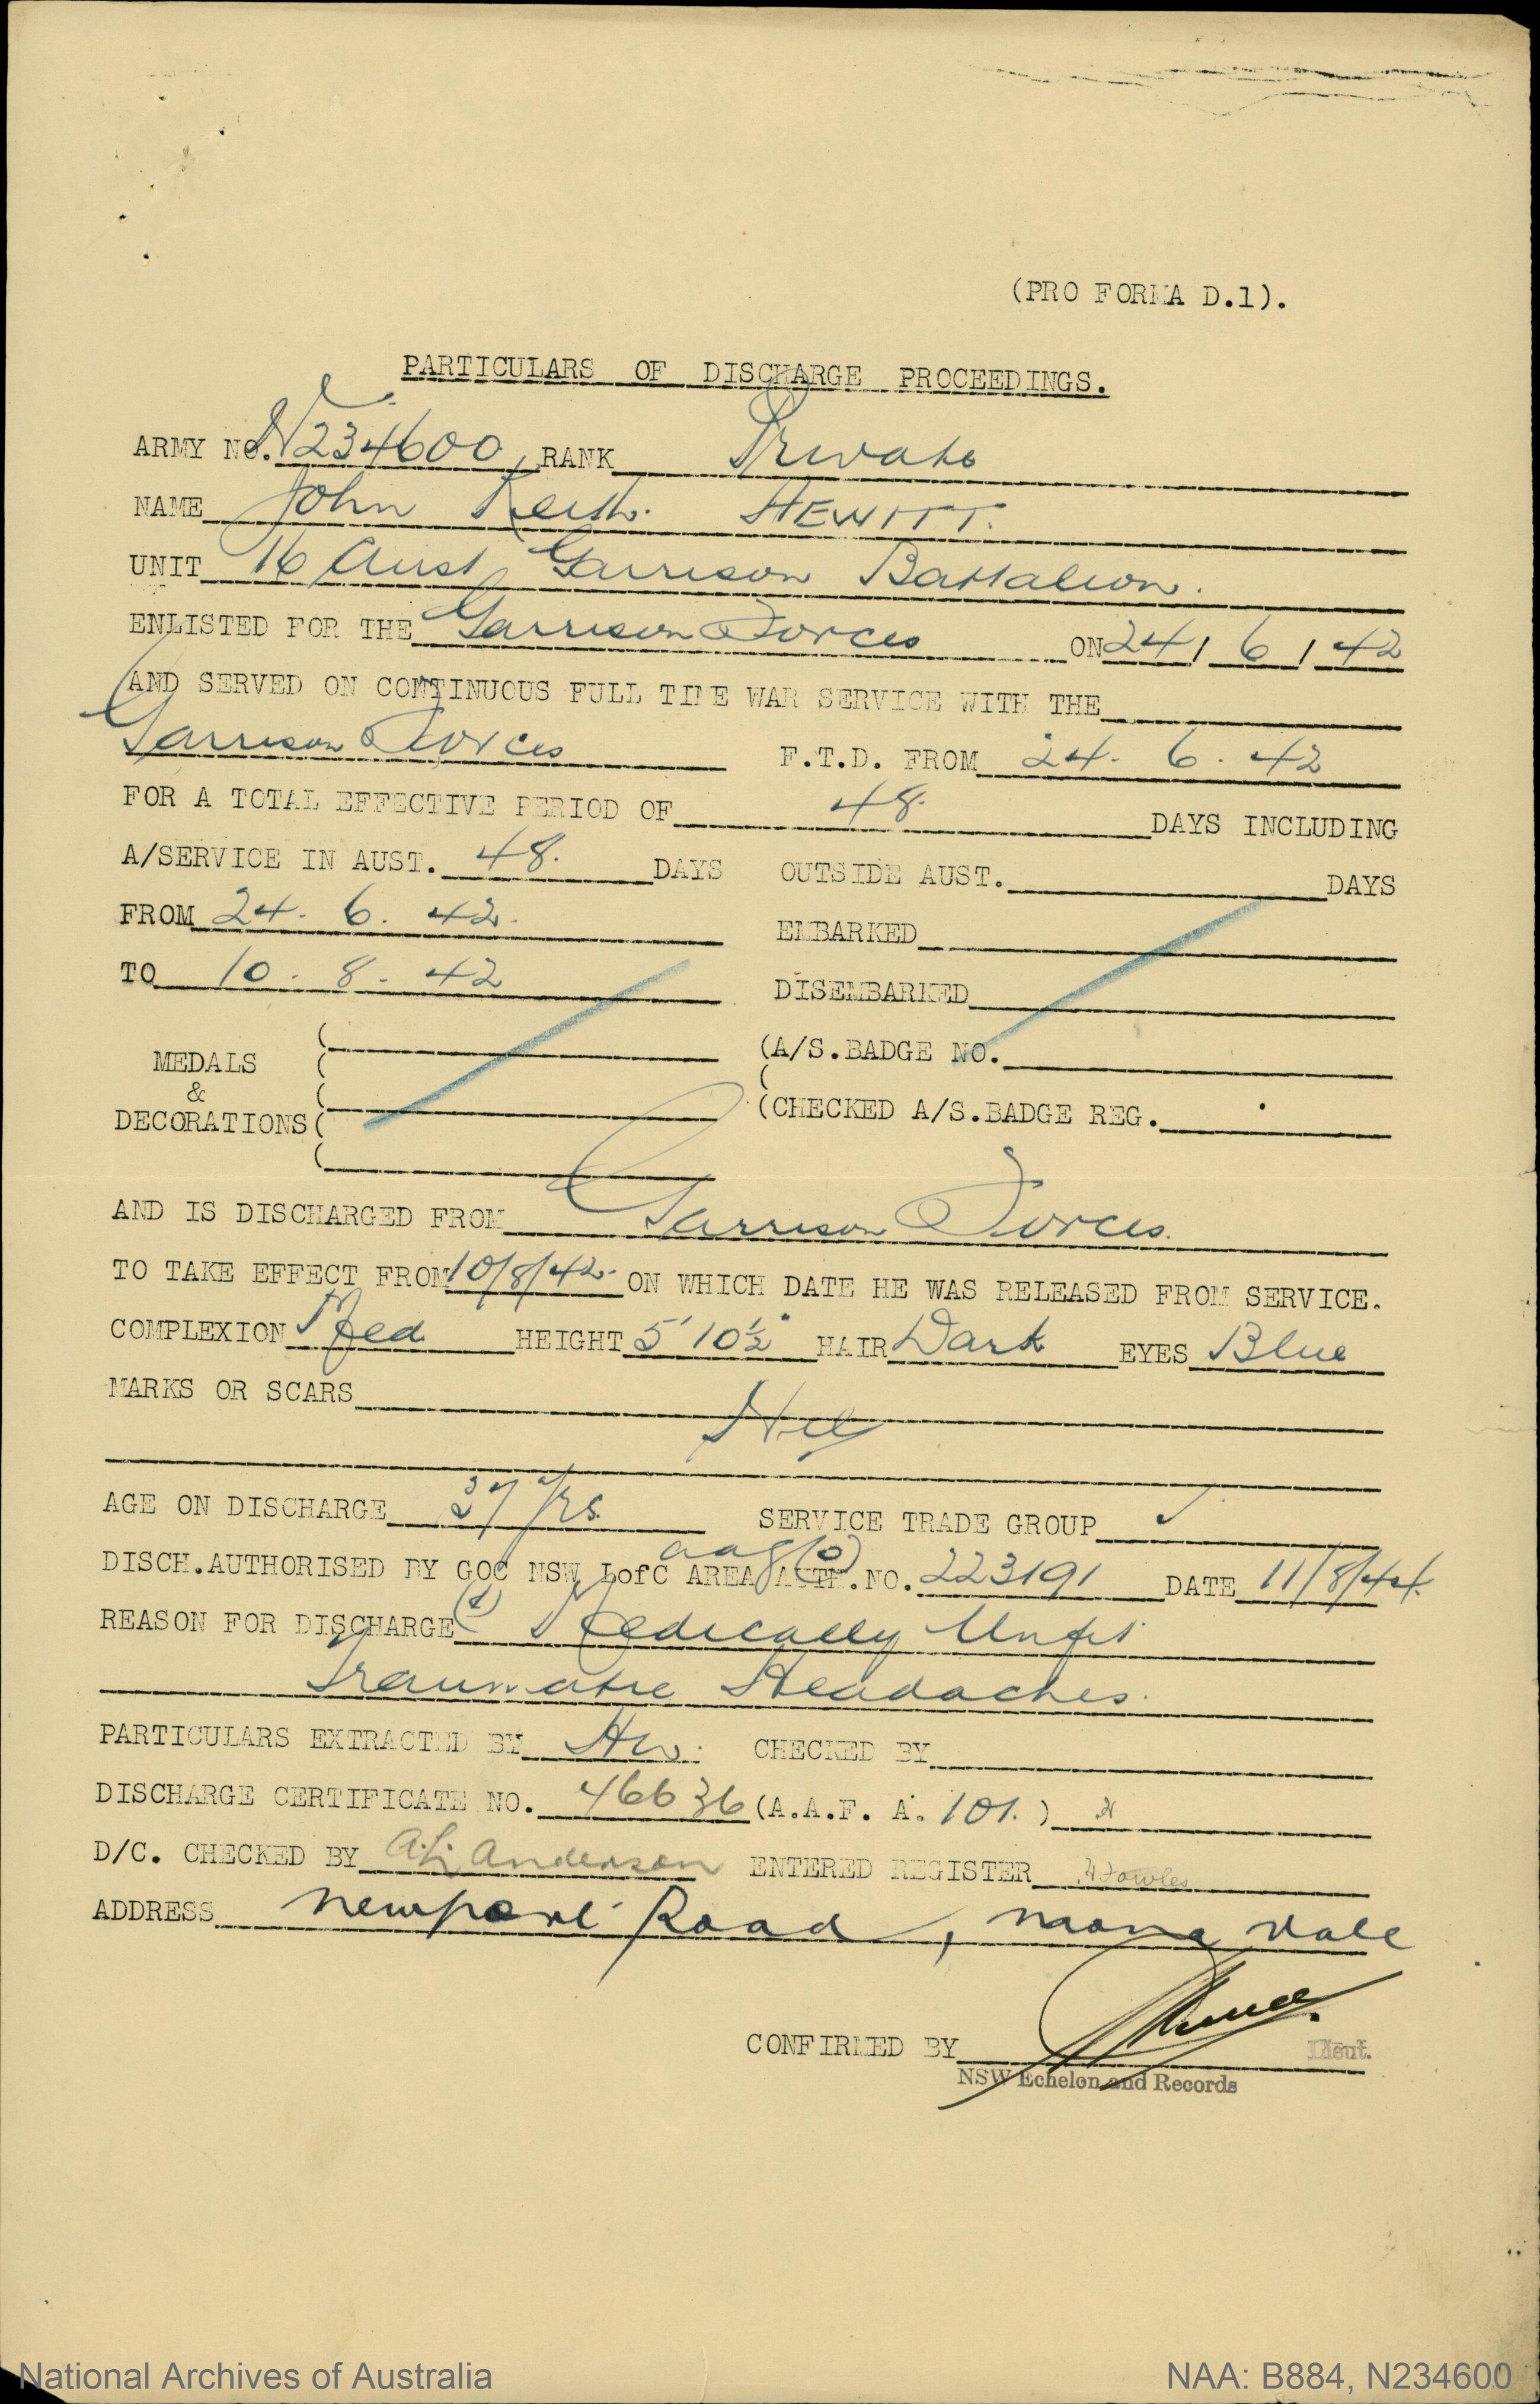 (PRO FORMA D.1).
PARTICULARS OF DISCHARGE PROCEEDINGS.
ARMY NO. N234600 RANK Private
NAME John Keith HEWITT.
UNIT 16 Aust Garrison Battalion.
ENLISTED FOR THE Garrison Forces ON 24/6/42
AND SERVED ON CONTINUOUS FULL TIME WAR SERVICE WITH THE
Garrison Forces F.T.D. FROM 24. 6. 42
FOR A TOTAL EFFECTIVE PERIOD OF 48 DAYS INCLUDING
A/SERVICE IN AUST. 48. DAYS OUTSIDE AUST. DAYS
FROM 24. 6. 42. EMBARKED
TO 10. 8. 42 DISEMBARKED
MEDALS & DECORATIONS (A/S.BADGE NO.
(CHECKED A/S.BADGE REG.
AND IS DISCHARGED FROM Garrison Forces.
TO TAKE EFFECT FROM 10/8/42 ON WHICH DATE HE WAS RELEASED FROM SERVICE.
COMPLEXION Med HEIGHT 5' 10½" HAIR Dark EYES Blue
MARKS OR SCARS
Nil
AGE ON DISCHARGE yrs. SERVICE TRADE GROUP
DISCH.AUTHORISED BY GOC NSW LofC AREA AUTH.NO. aag(o) 223191 DATE 11/8/44.
REASON FOR DISCHARGE (1) Medically Unfit
Traumatic Headaches.
PARTICULARS EXTRACTED BY CHECKED BY
DISCHARGE CERTIFICATE NO. 46636 (A.A.F. A. 101.)
D/C. CHECKED BY A.L. Anderson ENTERED REGISTER
ADDRESS Newport Road, Mona Vale
CONFIRMED BY Lieut.
NSW Echelon and Records
National Archives of Australia NAA: B884, N234600